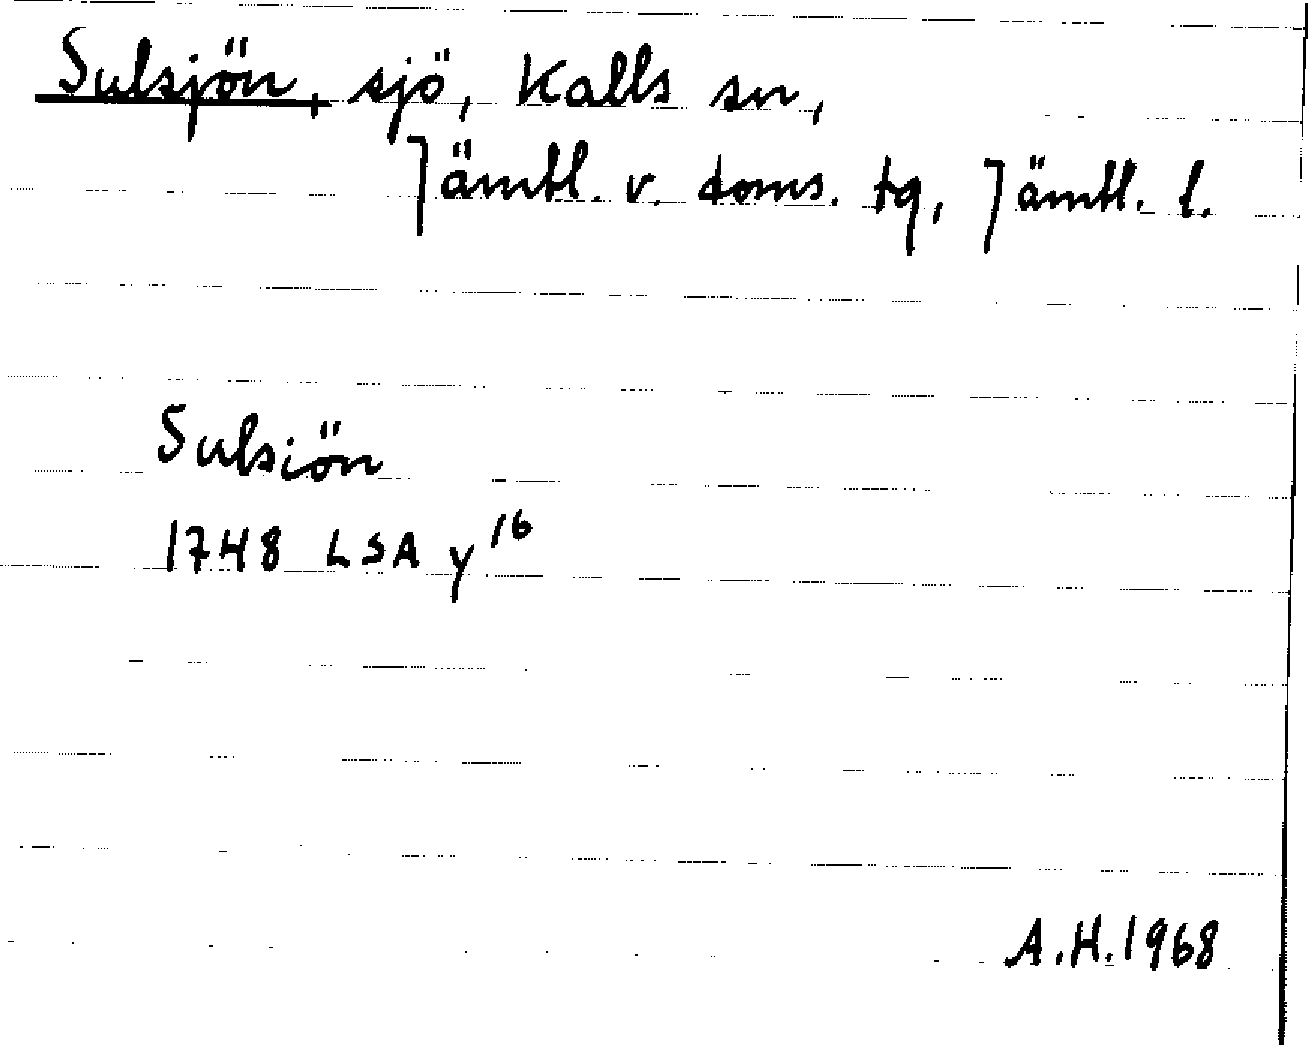 Sulsjön, sjö, Kalls sn,
Jämtl. v. doms. tg, Jämtl. l.
Sulsiön
1748 LSA y16
A.H. 1968